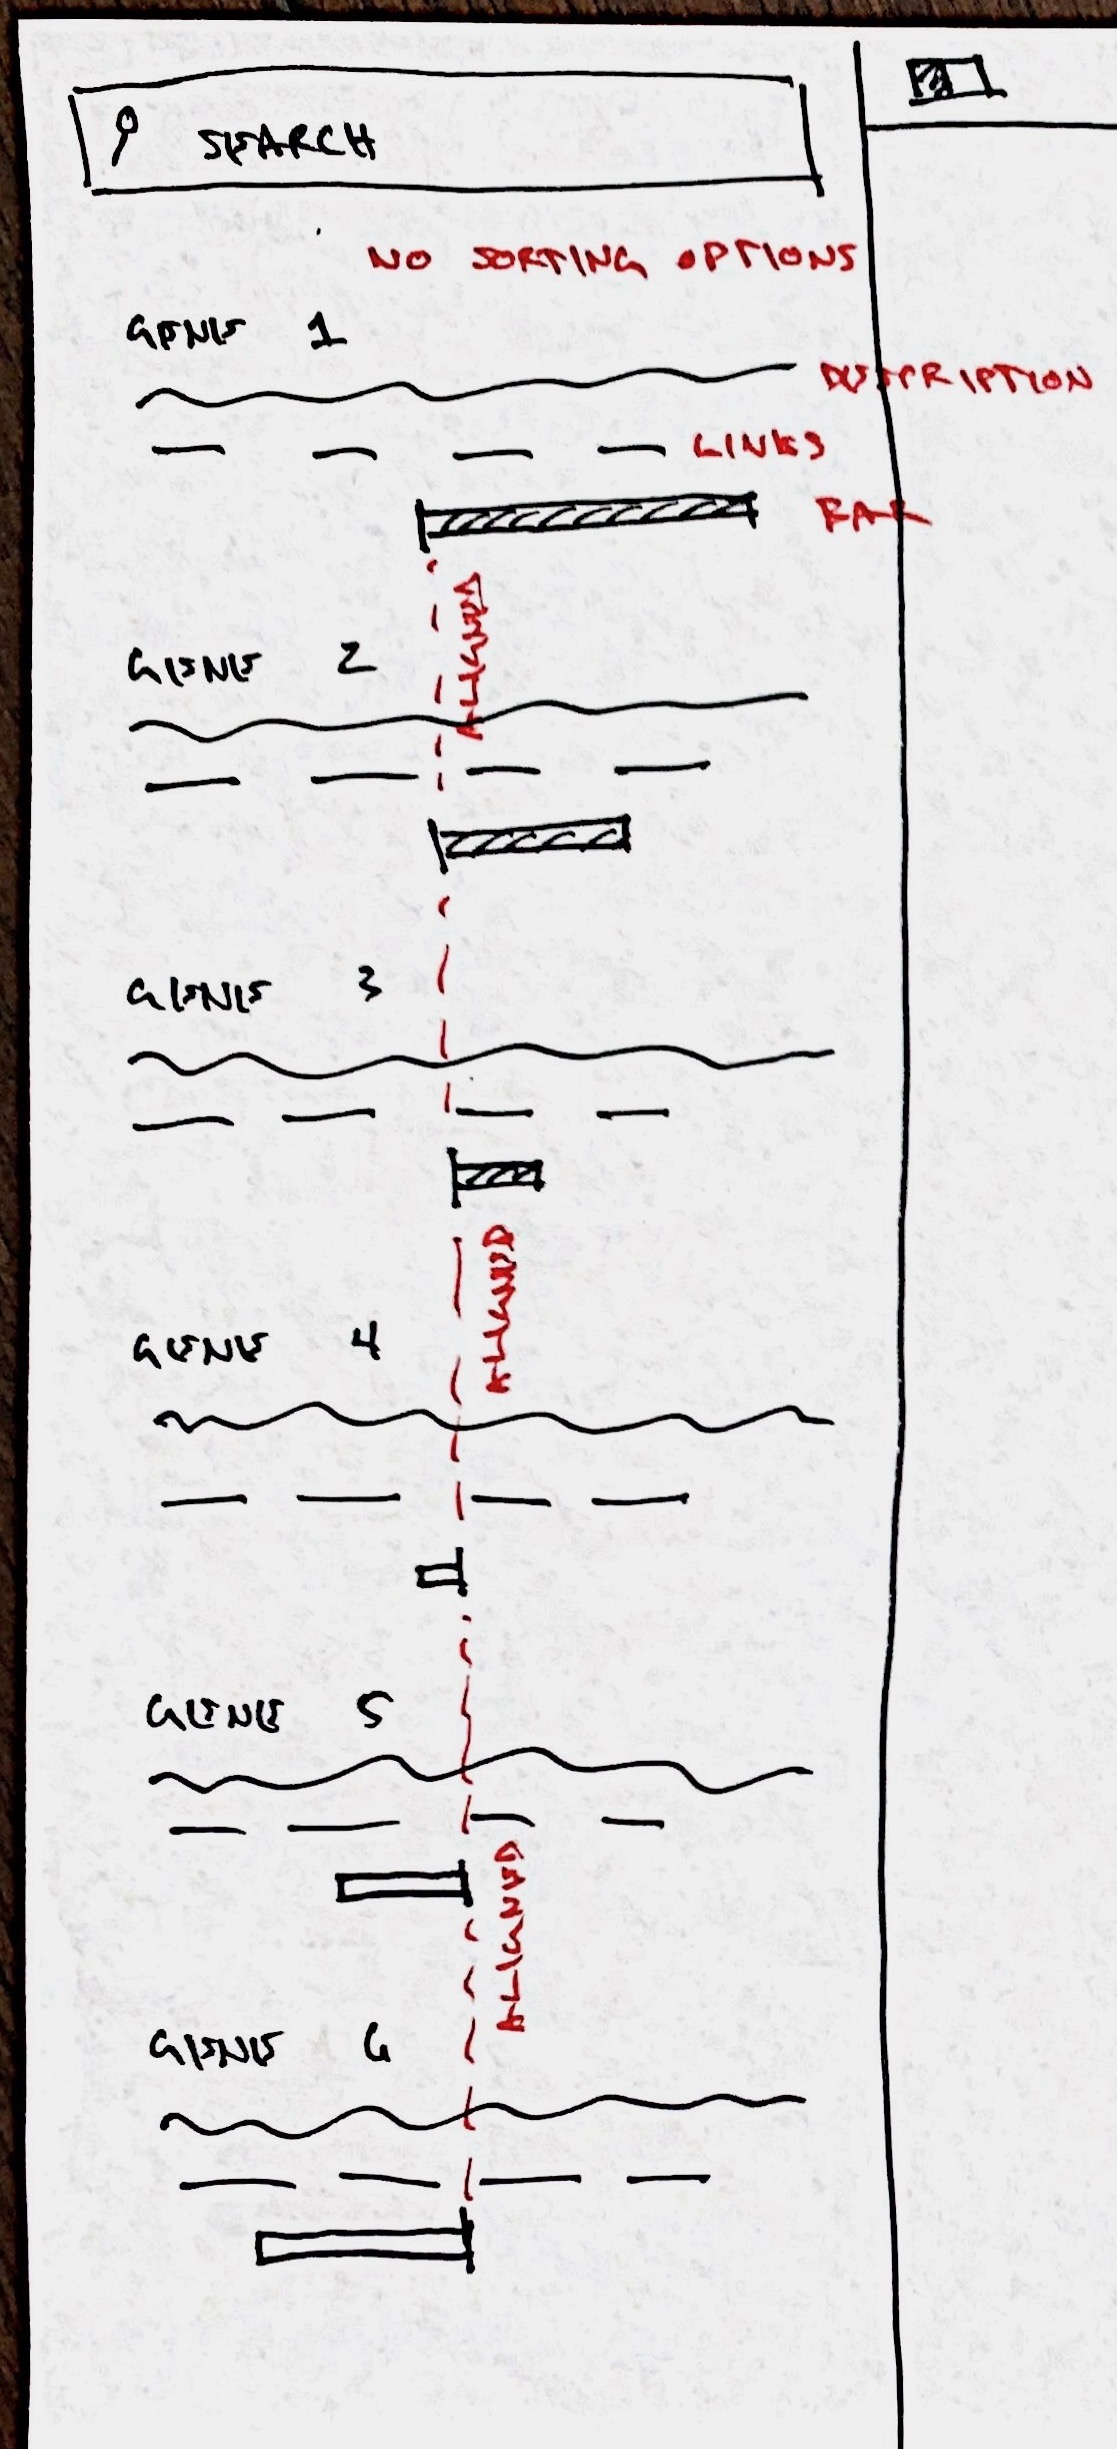 SEARCH
NO SORTING OPTIONS
GENE 1
DESCRIPTION
LINKS
BAR
ALIGNED
GENE 2
GENE 3
ALIGNED
GENE 4
GENE 5
ALIGNED
GENE 6